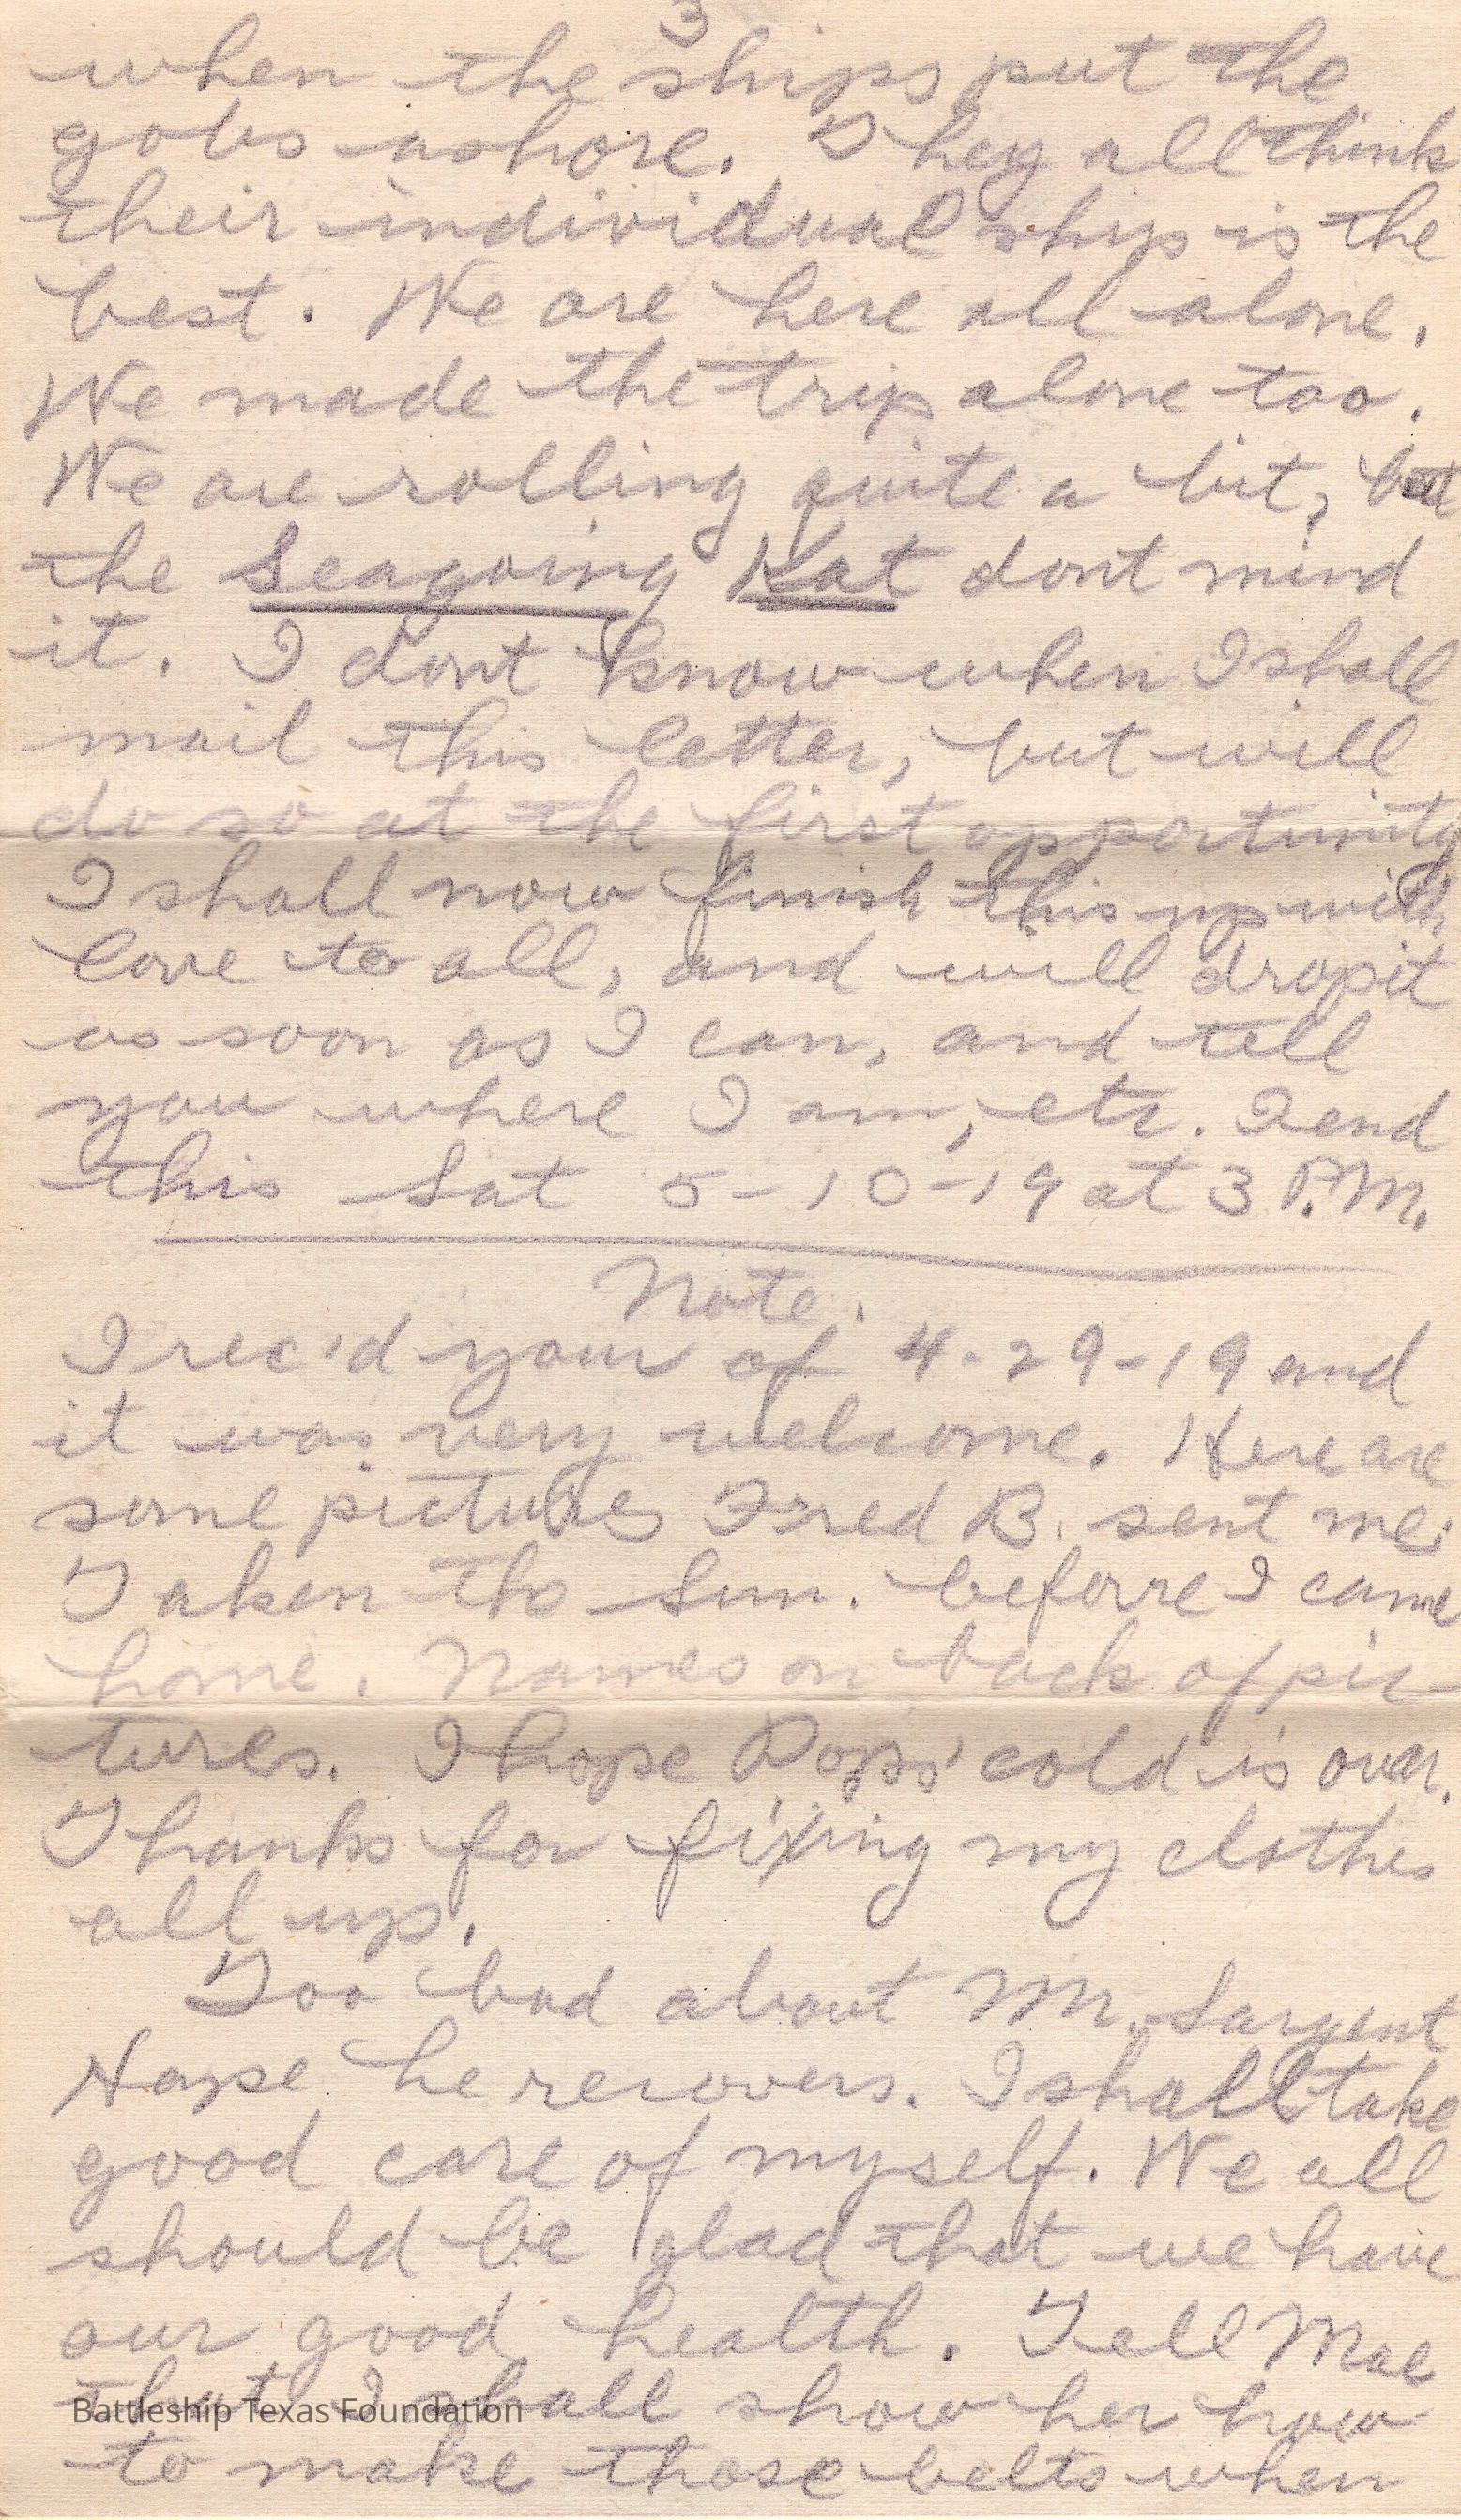 3
when the ships put the
gobs ashore. They all think
their individual ship is the
best. We are here all alone.
We made the trip alone too.
We are rolling quite a bit, but
the Seagoing Kat dont mind
it. I dont know when I shall
mail this letter, but will
do so at the first opportunity
I shall now finish this up with
love to all, and will drop it
as soon as I can, and tell
you where I am, etc. I end
this Sat 5-10-19 at 3 P.M.
Note.
I rec'd your of 4-29-19 and
it was very welcome. Here are
some pictures Fred B. sent me.
Taken the Sun. beforre I came
home. Names on back of pic-
tures. I hope Pops' cold is over.
Thanks for fixing my clothes
all up.
Too bad about Mr. Sargent
Hope he recovers. I shall take
good care of myself. We all
should be glad that we have
our good health. Tell Mae
that I shall show her how
to make those belts when
Battleship Texas Foundation